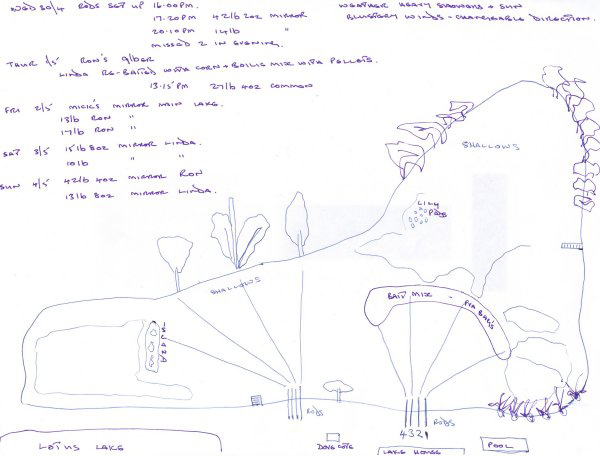 WED 30/4 RODS SET UP 16.00PM.
WEATHER HEAVY SHOWERS + SUN
17.20PM 42lb 2oz MIRROR
BLUSTERY WINDS - CHANGEABLE DIRECTION.
20.10PM 14lb "
MISSED 2 IN EVENING.
THUR 1/5 RON'S 9lber
LINDA RE-BAITED WITH CORN + BOILIE MIX WITH PELLETS.
13.15PM 27lb 4oz COMMON
FRI 2/5 MICK'S MIRROR MAIN LAKE.
13lb RON "
17lb RON "
SAT 3/5 15lb 8oz MIRROR LINDA.
10lb " "
SUN 4/5 42lb 4oz MIRROR RON
13lb 8oz MIRROR LINDA.
SHALLOWS
LILY
PADS
SHALLOWS
BAIT MIX - PVA BAGS
ISLAND
RODS
RODS
4 3 2 1
DOVE COTE
LAKE HOUSE
POOL
LOTUS LAKE